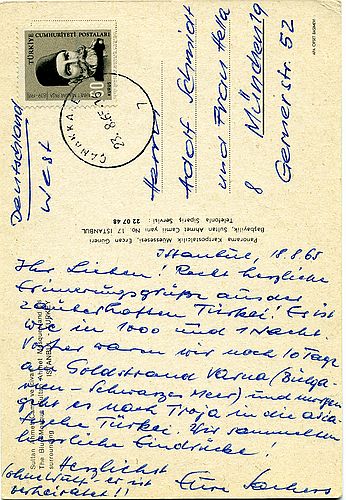 TÜRKİYE CUMHURİYETİ POSTALARI
ÇANAKKALE
Deutschland
West
Herrn
Adolf Schmidt
und Frau Hella
8 München 19
Gernerstr. 52
Panorama Kartpostalcılık Müessesesi, Ercan Güneri
Başbayilik, Sultan Ahmet Camii yanı No. 17 İSTANBUL
Telefonla Sipariş Servisi : 22 07 48
Istanbul, 18.8.65
Ihr Lieben! Recht herzliche
Erinnerungsgrüße aus der
zauberhaften Türkei! Er ist
wie in 1000 und 1 Nacht.
Vorher waren wir noch 10 Tage
am Goldstrand Varna (Bulga-
rien - Schwarzes Meer) und morgen
geht es nach Troja in die asia-
tische Türkei. Wir sammelten
herrliche Eindrücke!
Herzlichst
Eure
(ohne er ist
verheiratet!!
Sultan Ahmet
The Blue
surrounding
ISTANBUL - TURKEY